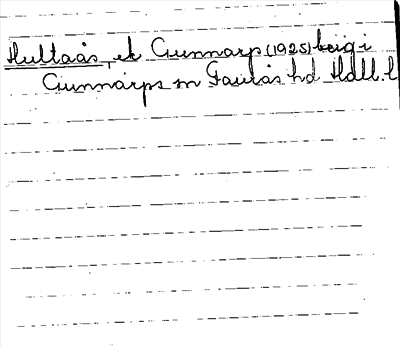 Hultaås, ek Gunnarp (1925) beig i
Gunnarps sn Faurås hd Hall. l